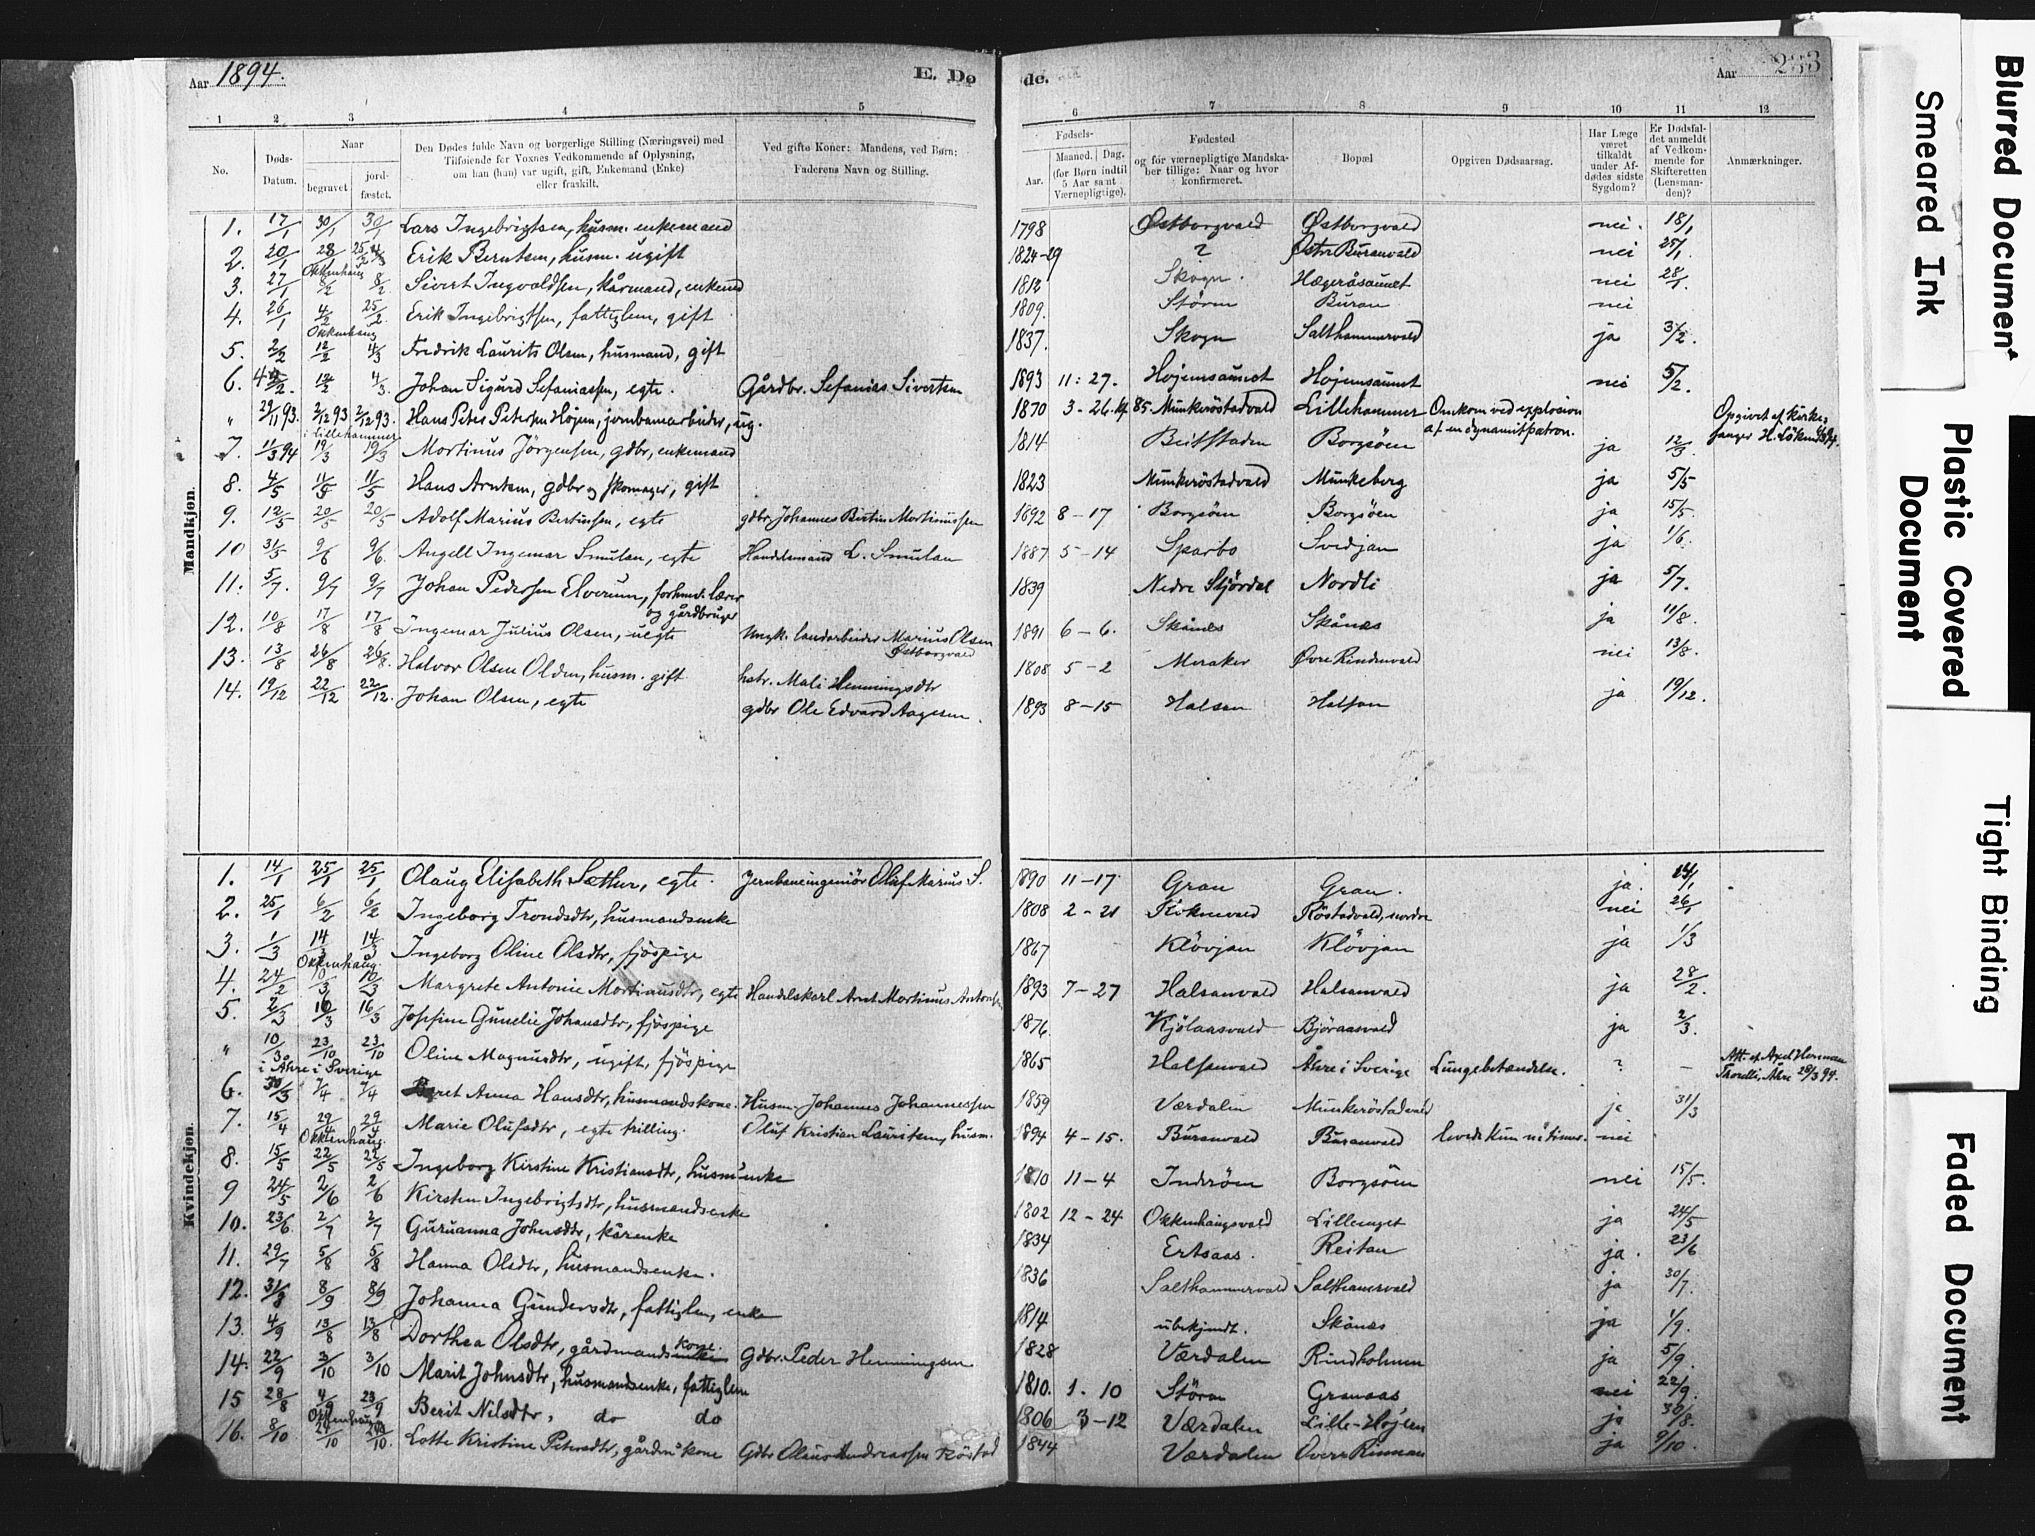 Aar 1894.
E. Dø
de.
Aar
233
1 2 3 4 5 6 7 8 9 10 11 12
No.
Døds-
Datum.
Naar
begravet
jord-
fæstet.
Den Dødes fulde Navn og borgerlige Stilling (Næringsvei) med
Tilføiende for Voxnes Vedkommende af Oplysning,
om han (hun) var ugift, gift, Enkemand (Enke)
eller fraskilt.
Ved gifte Koner: Mandens, ved Børn:
Faderens Navn og Stilling.
Fødsels-
Aar.
Maaned. Dag.
(for Børn indtil
5 Aar samt
Værnepligtige).
Fødested
og for værnepligtige Mandska-
ber tillige: Naar og hvor
konfirmeret.
Bopæl.
Opgiven Dødsaarsag.
Har Læge
været
tilkaldt
under Af-
dødes sidste
Sygdom?
Er Dødsfal-
det anmeldt
af Vedkom-
mende for
Skifteretten
(Lensman-
den)?
Anmærkninger.
Mandkjøn.
1. 17/1 30/1 30/1 Lars Ingebrigtsen, husm. enkemand 1798 Østborgvald Østborgvald nei. 18/1
2. 20/1 28/1 Erik Berntsen, husm. ugift 1824-29 ? Østre Buranvald nei 25/1.
Okkenhaug
3. 27/1 8/2 8/2. Sivert Ingvaldsen, kårmand, enkemd 1812 Skogn. Hægeråsaunet nei 28/1.
4. 26/1 4/2 25/2. Erik Ingebrigtsen, fattiglem, gift 1809. Stören Buran nei
Okkenhaug
5. 2/2 12/2 4/3 Fredrik Laurits Olsen, husmand, gift 1837. Skogn Salthammervald ja 3/2.
6. 4/2. 12/2 4/3. Johan Sigurd Sefaniassen, egte. Gårdbr. Sefanias Sivertsen 1893 11: 27. Hojemsaunet Hojemsaunet nei 5/2.
" 29/11 93. 2/12 93 2/12 93. Hans Peter Petersen Hojem, jernbanearbeider, ug. 1870 3-26. kf. 85. Munkeröstadvald Lillehammer Omkom ved explosion
af en dynamitpatron.
Opgivet af kirke-
sanger H. Lökens
i Lillehammer
7. 11/3 94 19/3 19/3 Mortinus Jörgensen, gdbr, enkemand 1814 Beitstaden Borgsöen ja 12/3.
8. 4/5 11/5 11/5 Hans Arntsen, gdbr og skomager, gift 1823 Munkeröstadvald Munkeberg ja 5/5
9. 12/5 20/5 20/5 Adolf Marius Bertinsen, egte gdbr. Johannes Bertin Mortinussen 1892 8-17 Borgsöen Borgsöen ja 15/5.
10 31/5 9/6 9/6. Angell Ingemar Smulan, egte Handelsmand L. Smulan 1887 5-14 Sparbo Svedjan ja 1/6.
11. 5/7. 9/7 9/7 Johan Pedersen Elverum, forhenv. lærer
og gårdbruger
1839 Nedre Stjördal Nordli ja 5/7.
12. 10/8 17/8 17/8 Ingemar Julius Olsen, uegte Ungk. landarbeider Marius Olsen
Østborgvald
1891 6-6. Skånes Skånes ja 11/8.
13. 13/8 26/8 26/8. Halvor Olsen Olden, husm. gift hstr. Mali Henningsdtr 1808 5-2 Meraker Øvre Rindenvald nei 13/8.
14. 19/12 22/12 22/12. Johan Olsen, egte gdbr Ole Edvard Aagesen. 1893 8-15 Halsan Halsan ja 19/12.
Kvindekjøn.
1. 14/1 25/1 25/1 Olaug Elisabeth Sæther, egte. Jernbaneingeniör Oluf Marius S. 1890 11-17 Gran Gran. ja. 24/1
2. 25/1 6/2 6/2 Ingeborg Trondsdtr, husmandsenke 1808 2-21 Röstadvald, nordre nei 26/1
3. 1/3 14/3 14/3 Ingeborg Oline Olsdtr, fjöspige 1867 Klövjan Klövjan ja 1/3
Okkenhaug.
4. 24/2 10/3 10/3 Margrete Antonie Mortinusdtr, egte Handelskarl Arnt Mortinus Antonsen 1893 7-27 Halsanvald Halsanvald ja 28/2.
5. 2/3 16/3 16/3 Josefine Gunelie Johansdtr, fjöspige 1876. Kjölaasvald Björaasvald ja 2/3.
" 10/3 23/10 23/10 Oline Magnusdtr, ugift, fjöspige 1865 Halsanvald Åhre i Sverige Lungebetændelse. ? — Att. af Axel Herman
Thorelli, Åhre 28/3 94.
i Åhre i Sverige
6. 30/3 7/4 7/4 Beret Anna Hansdtr, husmandskone. Husm. Johannes Johannessen 1859 Værdalen Munkeröstadvald ja 31/3
7. 15/4 29/4 29/4 Marie Olufsdtr, egte trilling. Oluf Kristian Lauritsen, husm. 1894 4-15. Buranvald Buranvald levede kun ni timer. nei
Okkenhaug.
8. 15/5 22/5 22/5 Ingeborg Kirstine Kristiansdtr, husm.enke 1810 11-4 Inderöen Borgsöen nei 15/5.
9 24/5 2/6 2/6 Kirsten Ingebrigtsdtr, husmandsenke 1802 12-24 Okkenhaugsvald Lillemyet ja 24/5
10. 23/6 2/7 2/7 Guruanna Johnsdtr, kårenke 1834 Ertsaas. Reitan ja. 23/6
11. 29/7 5/8 5/8 Hanna Olsdtr, husmandsenke. 1836 Salthammervald Salthamervald ja 30/7.
12. 31/8 8/9 8/9 Johanna Gundersdtr, fattiglem, enke 1814 ubekjendt. Skånes ja 1/9.
13. 4/9 13/8 13/8 Dorthea Olsdtr, gårdmandskone. Gdbr. Peder Henningsen 1828 Værdalen Rindholmen ja 5/9.
14. 22/9 3/10 3/10 Marit Johnsdtr, husmandsenke, fattiglem 1810. 1. 10 Stören Granaas nei 22/9.
15 28/8 4/9 23/9 Berit Nilsdtr, do do 1806 3-12 Værdalen Lille-Hojem ja 30/8.
Okkenhaug
16. 8/10 Lotte Kristine Petersdtr, gårdm's kone Gdbr. Olaus Andreassen Röstad 1844 Værdalen Overr Rinnan ja 9/10.
Blurred Document
Smeared Ink
Plastic Covered
Document
Tight Binding
Faded Document